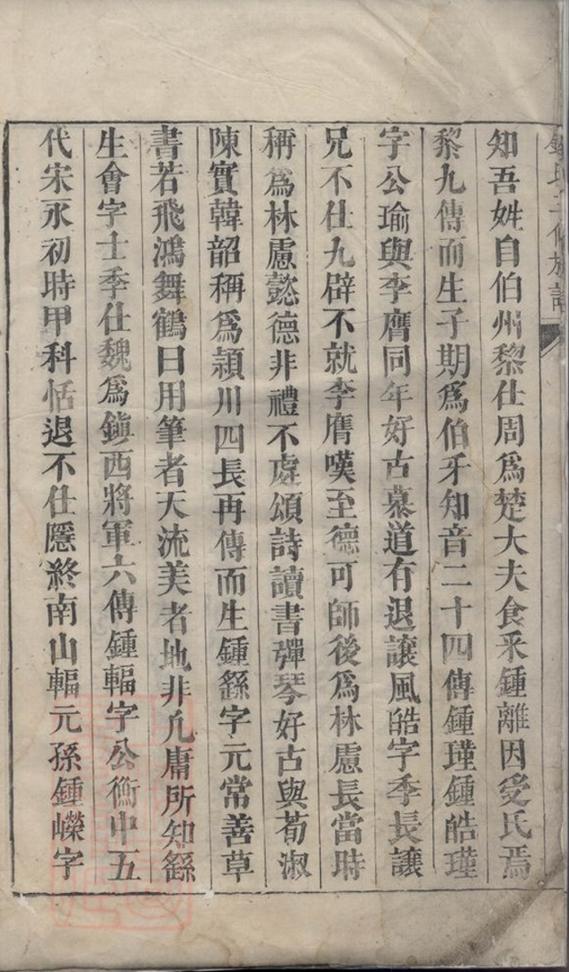 知吾姓自伯州黎仕周爲楚大夫食采鍾離因受氏焉
黎九傳而生子期爲伯牙知音二十四傳鍾瑾鍾皓瑾
字公瑜與李膺同年好古慕道有退讓風皓字季長讓
兄不仕九辟不就李膺嘆至德可師後爲林慮長當時
稱爲林慮懿德非禮不處頌詩讀書彈琴好古與荀淑
陳實韓韶稱爲潁川四長再傳而生鍾繇字元常善草
書若飛鴻舞鶴曰用筆者天流美者地非凢庸所知繇
生會字士季仕魏爲鎮西將軍六傳鍾輻字公衡中五
代宋永初時甲科恬退不仕隱終南山輻元孫鍾嶸字